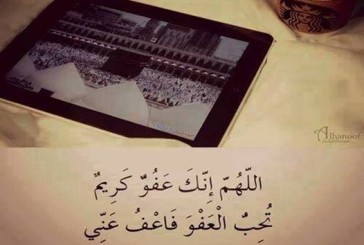 Alhanoof
اللّهُمّ إِنّكَ عَفُوٌّ كَرِيمٌ
تُحبُّ الْعَفْوَ فَاعْفُ عَنِّي